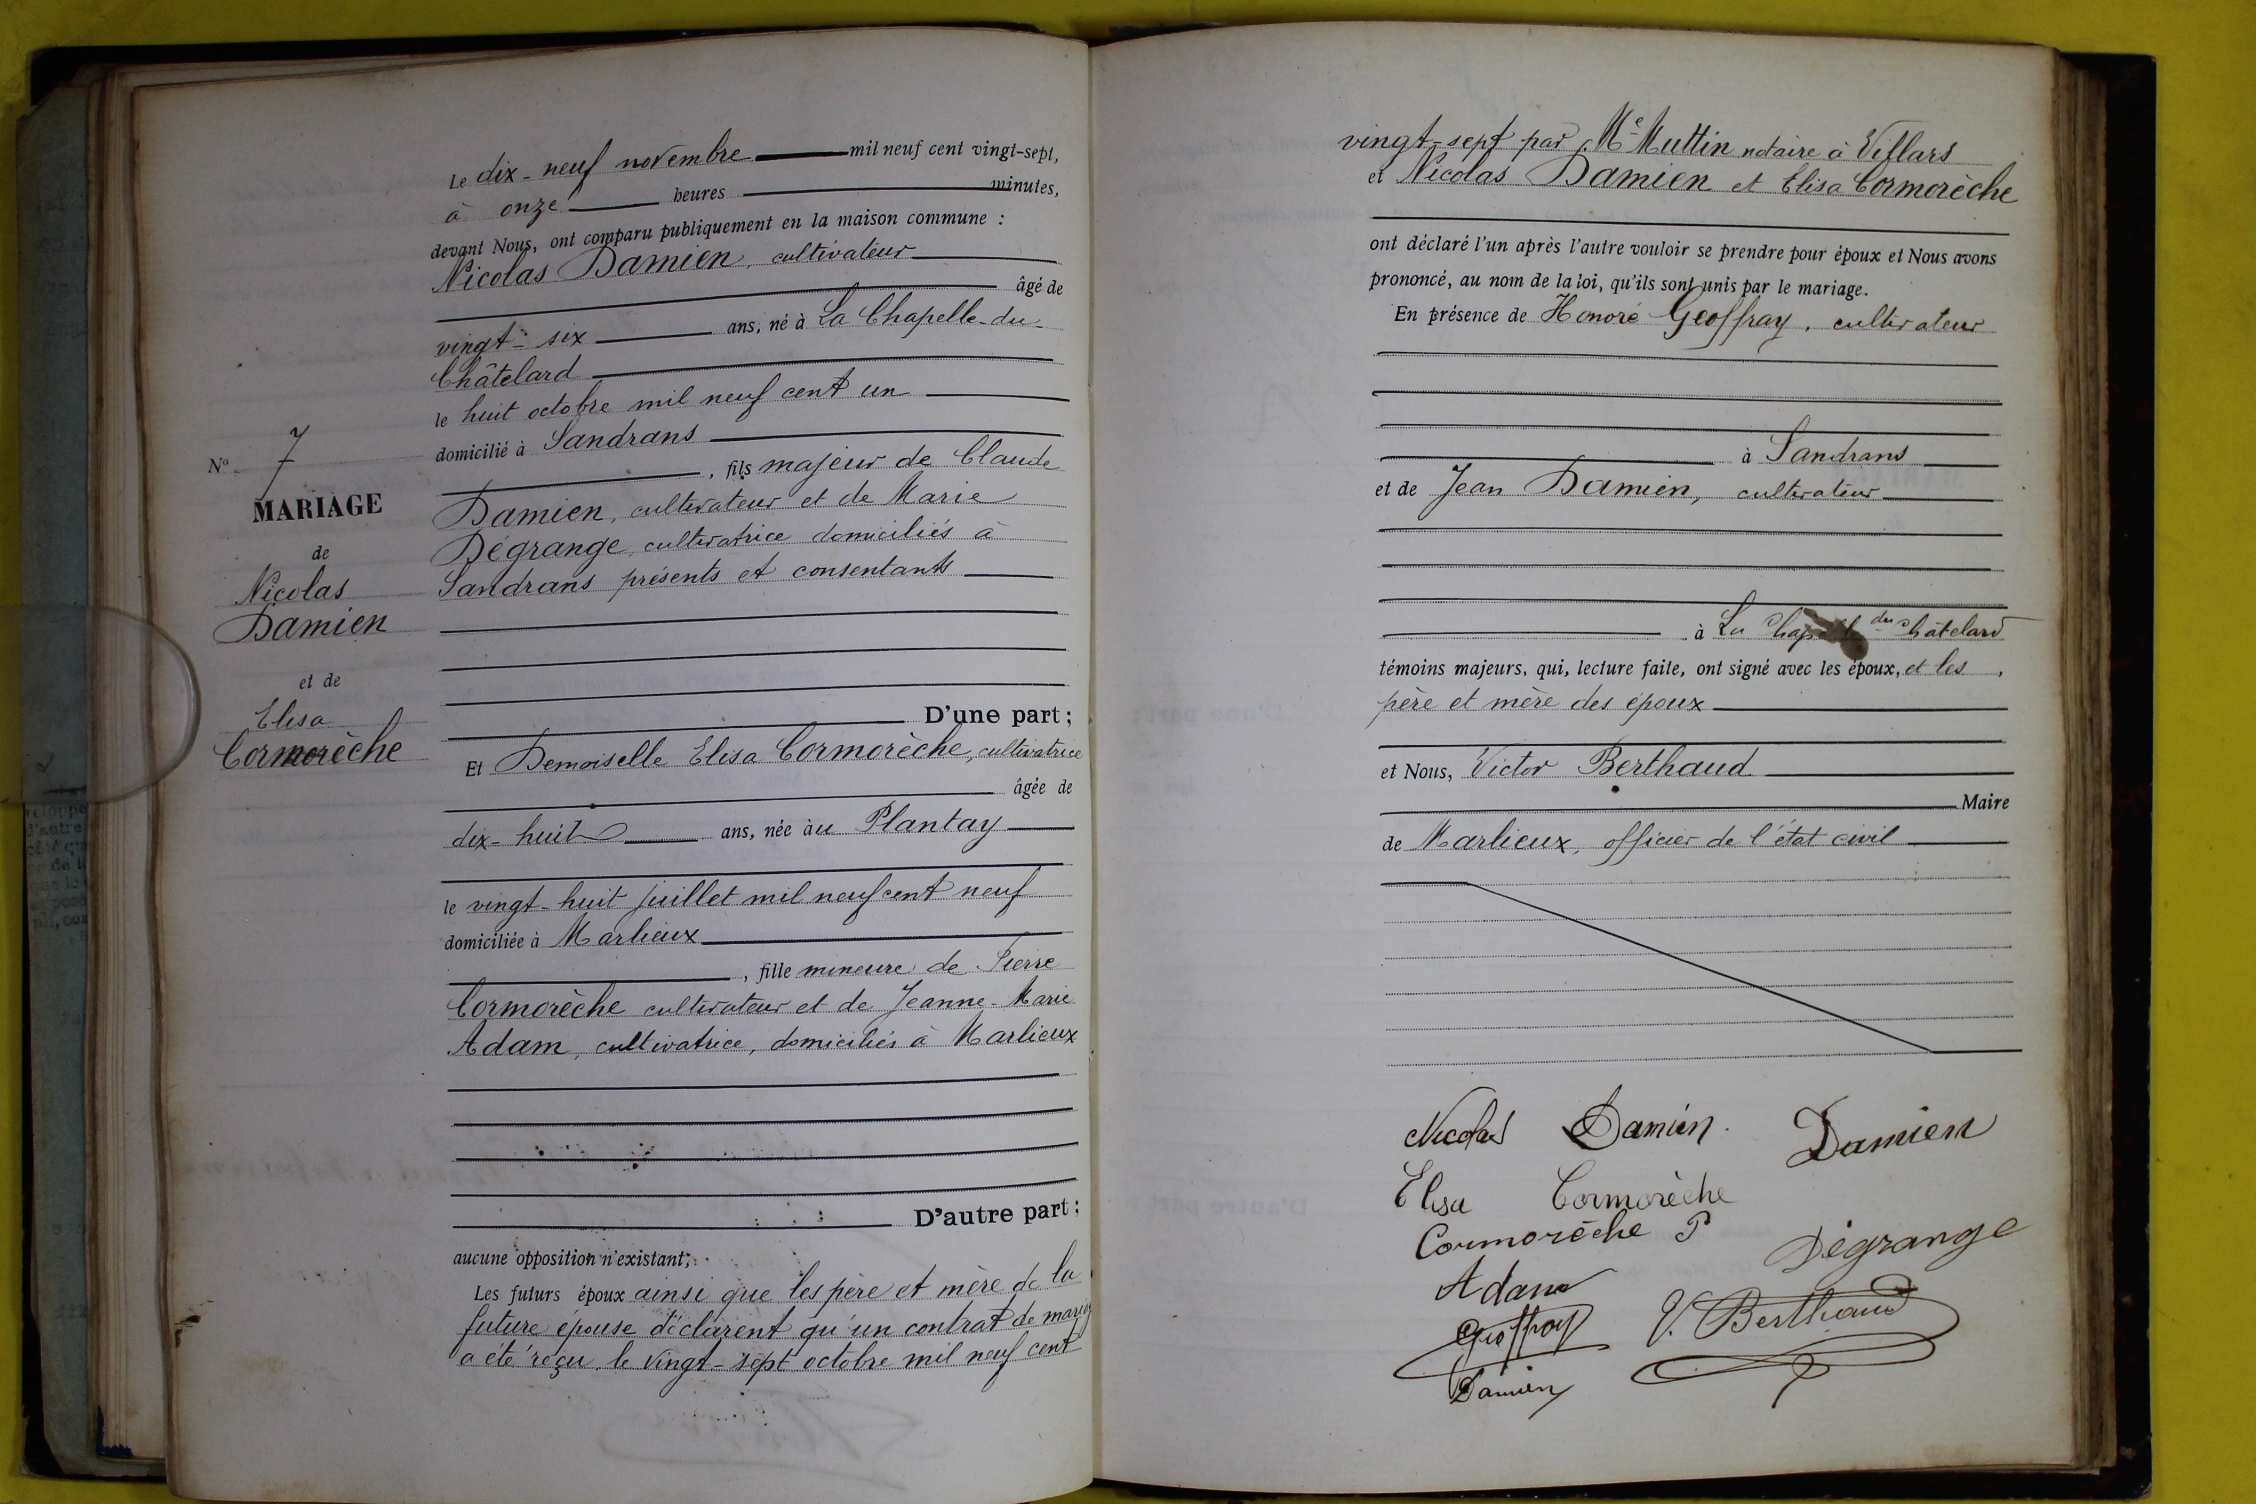 Le dix-neuf novembre mil neuf cent vingt-sept,
à onze heures minutes,
devant Nous, ont comparu publiquement en la maison commune :
Nicolas Damien, cultivateur
âgé de
vingt-six ans, né à La Chapelle-du-
Châtelard
le huit octobre mil neuf cent un
domicilié à Sandrans
, fils majeur de Claude
Damien, cultivateur et de Marie
Dégrange, cultivatrice domiciliés à
Sandrans présents et consentants
D'une part ;
Et Demoiselle Elisa Cormorèche, cultivatrice
âgée de
dix-huit ans, née àu Plantay
le vingt-huit juillet mil neuf cent neuf
domiciliée à Marlieux
, fille mineure de Pierre
Cormorèche cultivateur et de Jeanne-Marie
Adam, cultivatrice, domiciliés à Marlieux
D'autre part ;
aucune opposition n'existant ;
Les futurs époux ainsi que les père et mère de la
future épouse déclarent qu'un contrat de mariag
a été reçu le vingt-sept octobre mil neuf cent
No 7
MARIAGE
de
Nicolas
Damien
et de
Elisa
Cormorèche
vingt-sept par Me Muttin notaire à Villars
et Nicolas Damien et Elisa Cormorèche
ont déclaré l'un après l'autre vouloir se prendre pour époux et Nous avons
prononcé, au nom de la loi, qu'ils sont unis par le mariage.
En présence de Honoré Geoffray, cultivateur
à Sandrans
et de Jean Damien, cultivateur
à La Chapelle du Châtelard
témoins majeurs, qui, lecture faite, ont signé avec les époux, et les ,
père et mère des époux
et Nous, Victor Berthaud
Maire
de Marlieux, officier de l'état civil
Nicolas Damien. Damien
Elisa Cormorèche
Cormorèche P Dégrange
Adam
Geoffray V. Berthaud
Damien